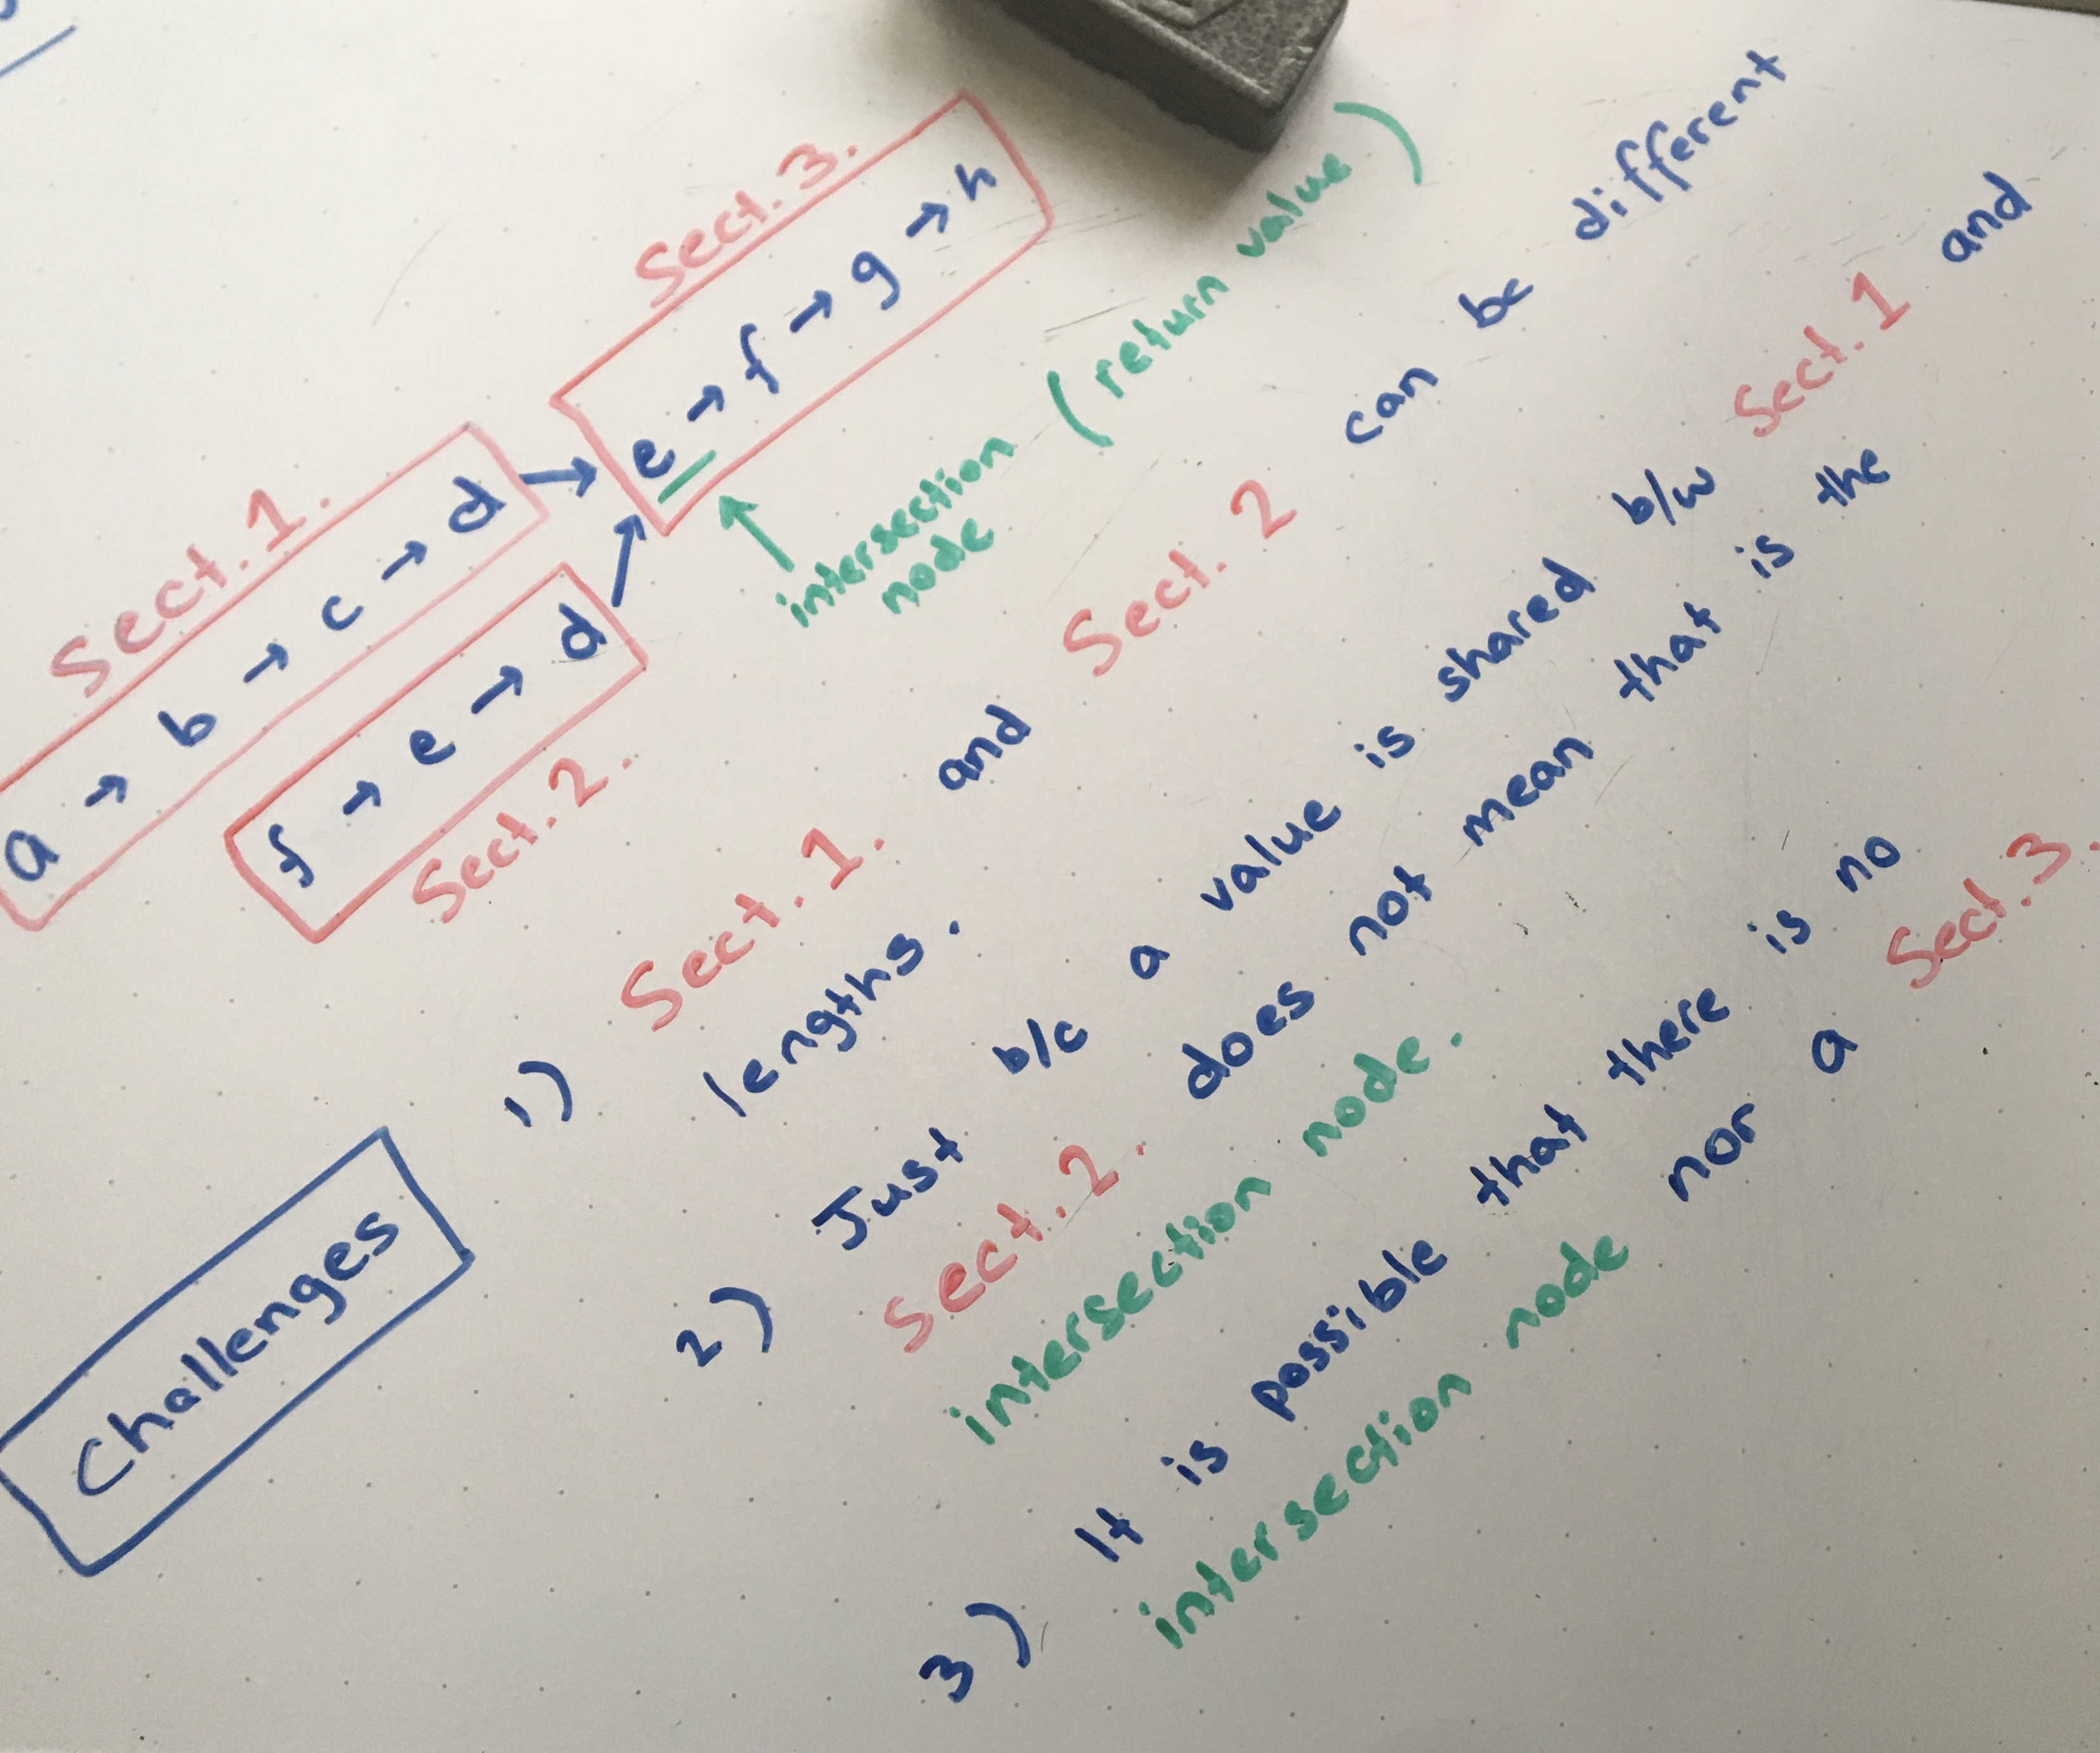 Sect. 1.
a → b → c → d →
Sect. 3.
e → f → g → h
f → e → d →
Sect. 2.
intersection (return value)
node
Challenges
1) Sect. 1. and Sect. 2 can be different
lengths.
2) Just b/c a value is shared b/w Sect. 1 and
Sect. 2. does not mean that is the
intersection node.
3) It is possible that there is no
intersection node nor a Sect. 3.